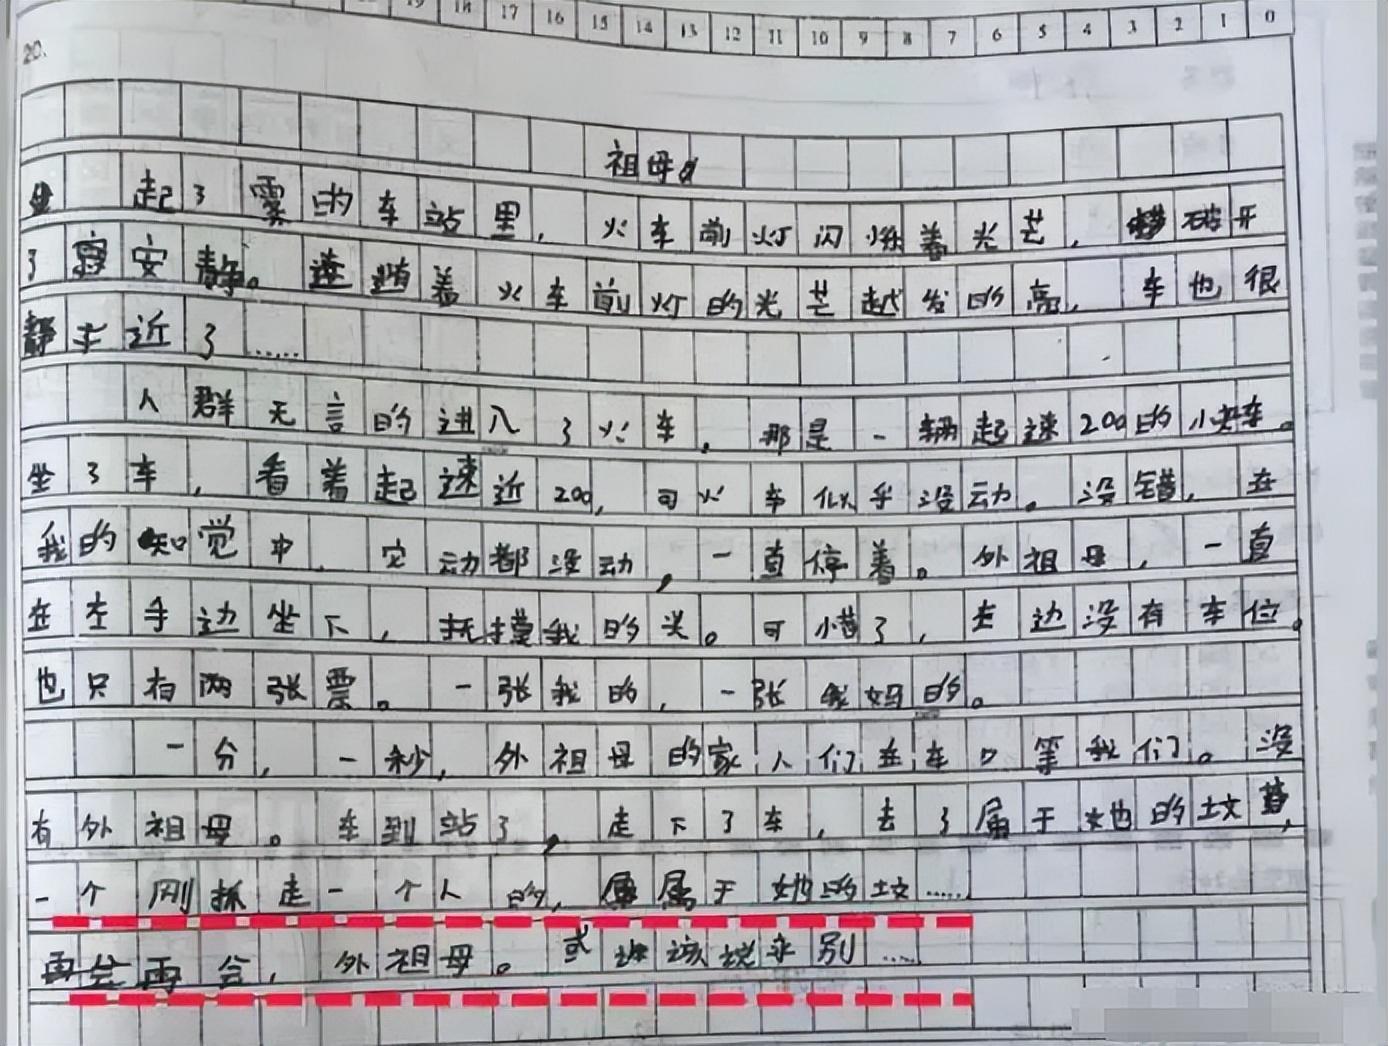 19 18 17 16 15 14 13 12 11 10 9 8 7 6 5 4 3 2 1 0
20.
祖母
起了雾的车站里，火车前灯闪烁着光芒，破开
了寂安静。随着火车前灯的光芒越发的亮，车也很
静近了……
人群无言的进入了火车，那是一辆起速200的小火车。
坐了车，看着起速近200，可火车似乎没动。没错，在
我的知觉中，它动都没动，一直停着。外祖母，一直
在左手边坐下，抚摸我的头。可惜了，左边没有车位。
也只有两张票。一张我的，一张我妈的。
一分，一秒，外祖母的家人们在车口等我们。没
有外祖母。车到站了，走下了车，去了属于她的坟墓，
一个刚抓走一个人的，属于她的坟……
再会，外祖母。或许该说永别……